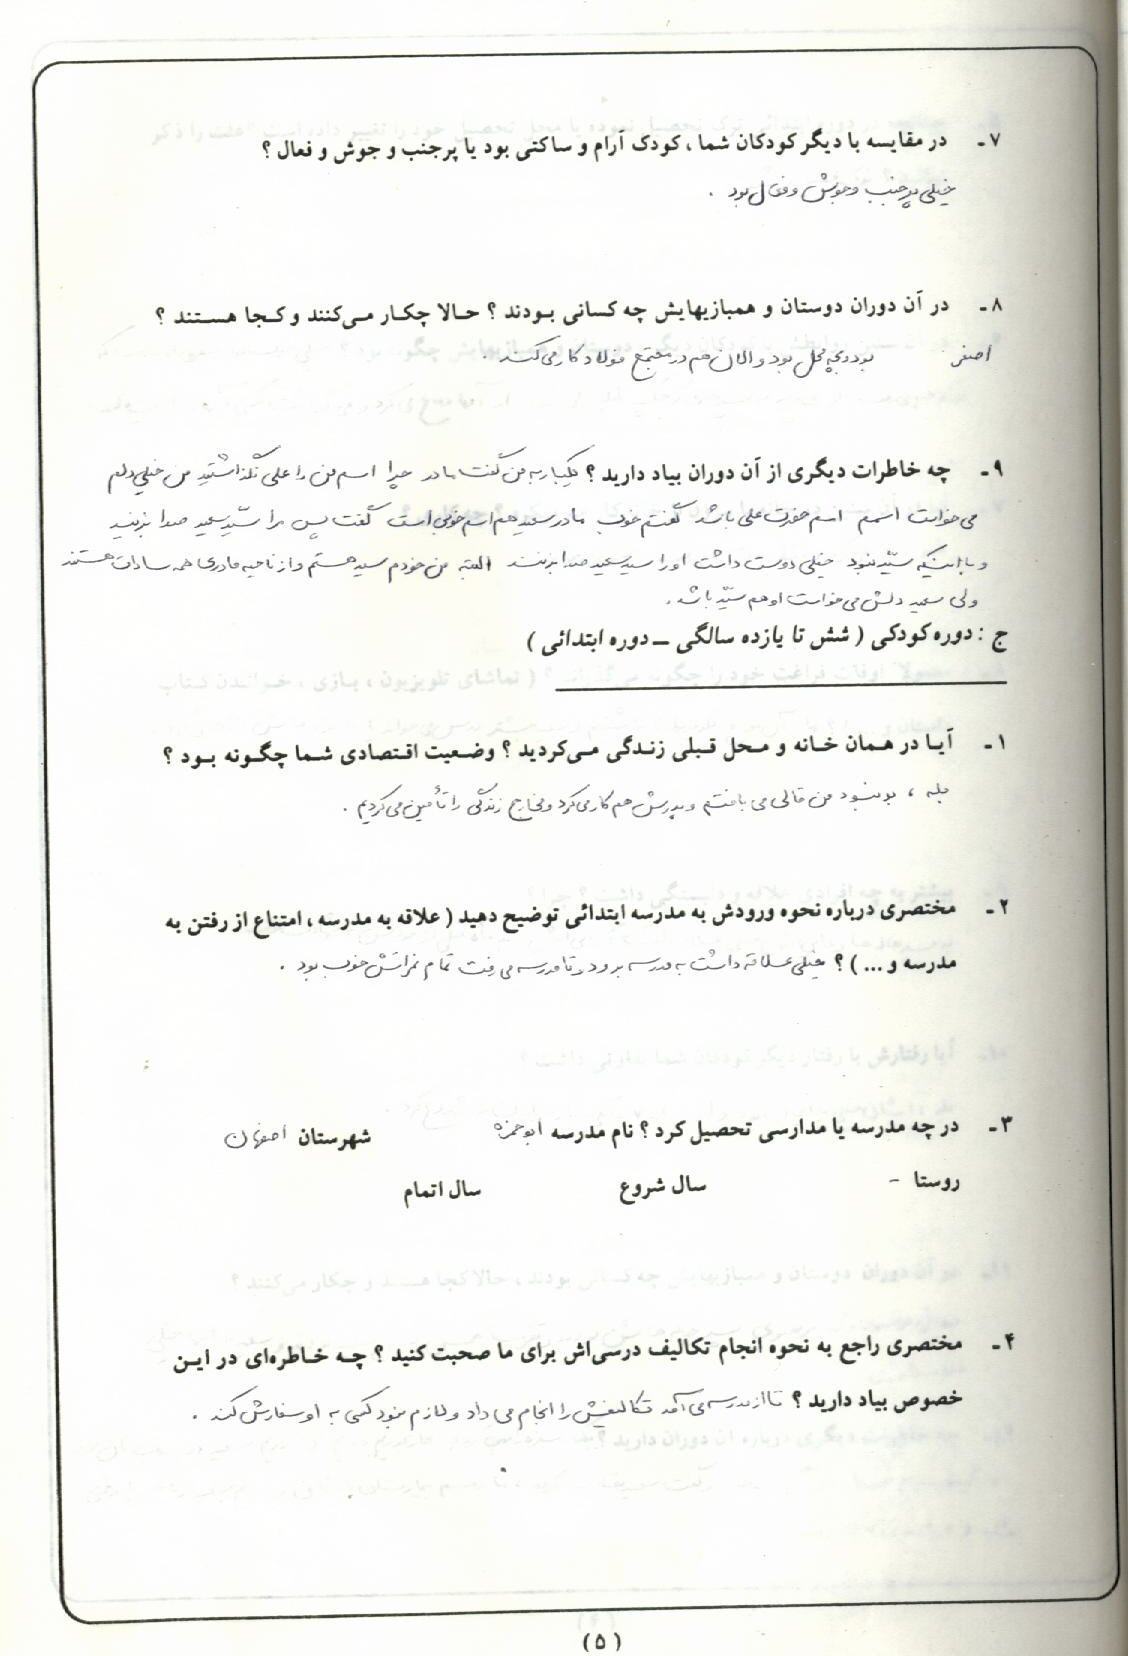 ۷ـ در مقایسه با دیگر کودکان شما ، کودک آرام و ساکتی بود یا پرجنب و جوش و فعال ؟
خیلی پرجنب وجوش و فعال بود .
۸ـ در آن دوران دوستان و همبازیهایش چه کسانی بودند ؟ حالا چکار می‌کنند و کجا هستند ؟
اصغر بود بچه محل بود و الان هم در مجتمع فولاد کار می‌کند .
۹ـ چه خاطرات دیگری از آن دوران بیاد دارید ؟ یکبار به من گفت مادر چرا اسم من را علی نگذاشتید من خیلی دلم
می‌خواست اسمم اسم حضرت علی باشد گفتم خوب مادر سعید هم اسم خوبی است گفت پس مرا سیّد سعید صدا بزنید
و با اینکه سیّد نبود خیلی دوست داشت او را سید سعید صدا بزنند البته من خودم سید هستم و از ناحیه مادری همه سادات هستند
ولی سعید دلش می‌خواست او هم سیّد باشد .
ج : دوره کودکی ( شش تا یازده سالگی ــ دوره ابتدائی )
۱ـ آیا در همان خانه و محل قبلی زندگی می‌کردید ؟ وضعیت اقتصادی شما چگونه بود ؟
بله ، بد نبود من قالی می بافتم و پدرش هم کار می‌کرد و مخارج زندگی را تأمین می‌کردیم .
۲ـ مختصری درباره نحوه ورودش به مدرسه ابتدائی توضیح دهید ( علاقه به مدرسه ، امتناع از رفتن به
مدرسه و ... ) ؟ خیلی علاقه داشت به مدرسه برود و تا مدرسه می رفت تمام نمراتش خوب بود .
۳ـ در چه مدرسه یا مدارسی تحصیل کرد ؟ نام مدرسه ابوحمزه شهرستان اصفهان
روستا - سال شروع سال اتمام
۴ـ مختصری راجع به نحوه انجام تکالیف درسی‌اش برای ما صحبت کنید ؟ چه خاطره‌ای در این
خصوص بیاد دارید ؟ تا از مدرسه می‌آمد تکالیفش را انجام می داد و لازم نبود کسی به او سفارش کند .
( ۵ )